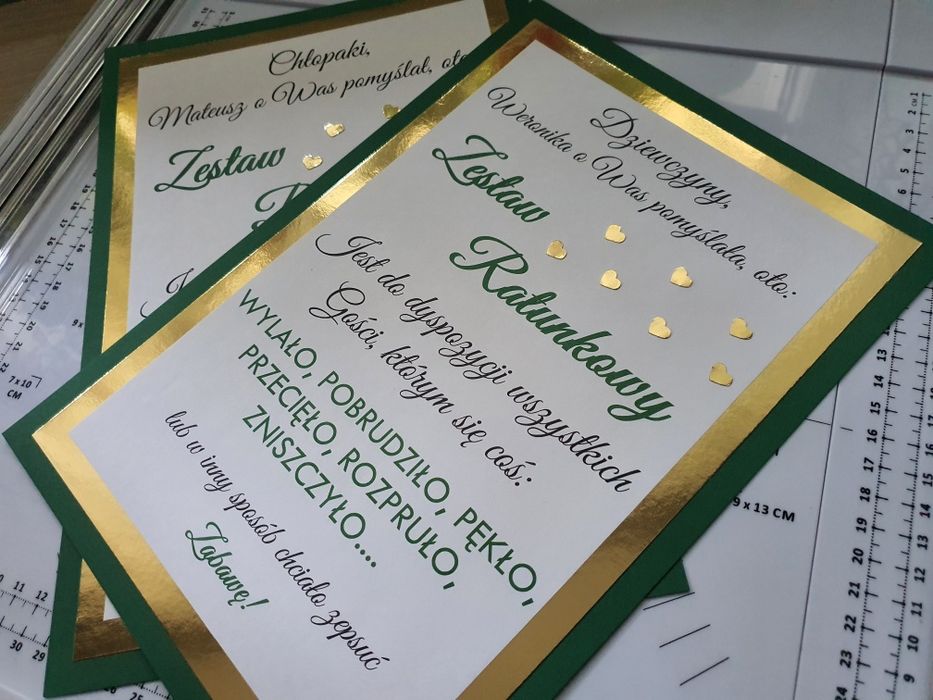 Chłopaki,
Mateusz o Was pomyślał, oto
Zestaw
Dziewczyny,
Weronika o Was pomyślała, oto:
Zestaw
Ratunkowy
Jest do dyspozycji wszystkich
Gości, którym się coś:
WYLAŁO, POBRUDZIŁO, PĘKŁO,
PRZECIĘŁO, ROZPRUŁO,
ZNISZCZYŁO...
lub w inny sposób chciało zepsuć
Zabawę!
7 x 10
CM
9 x 13 CM